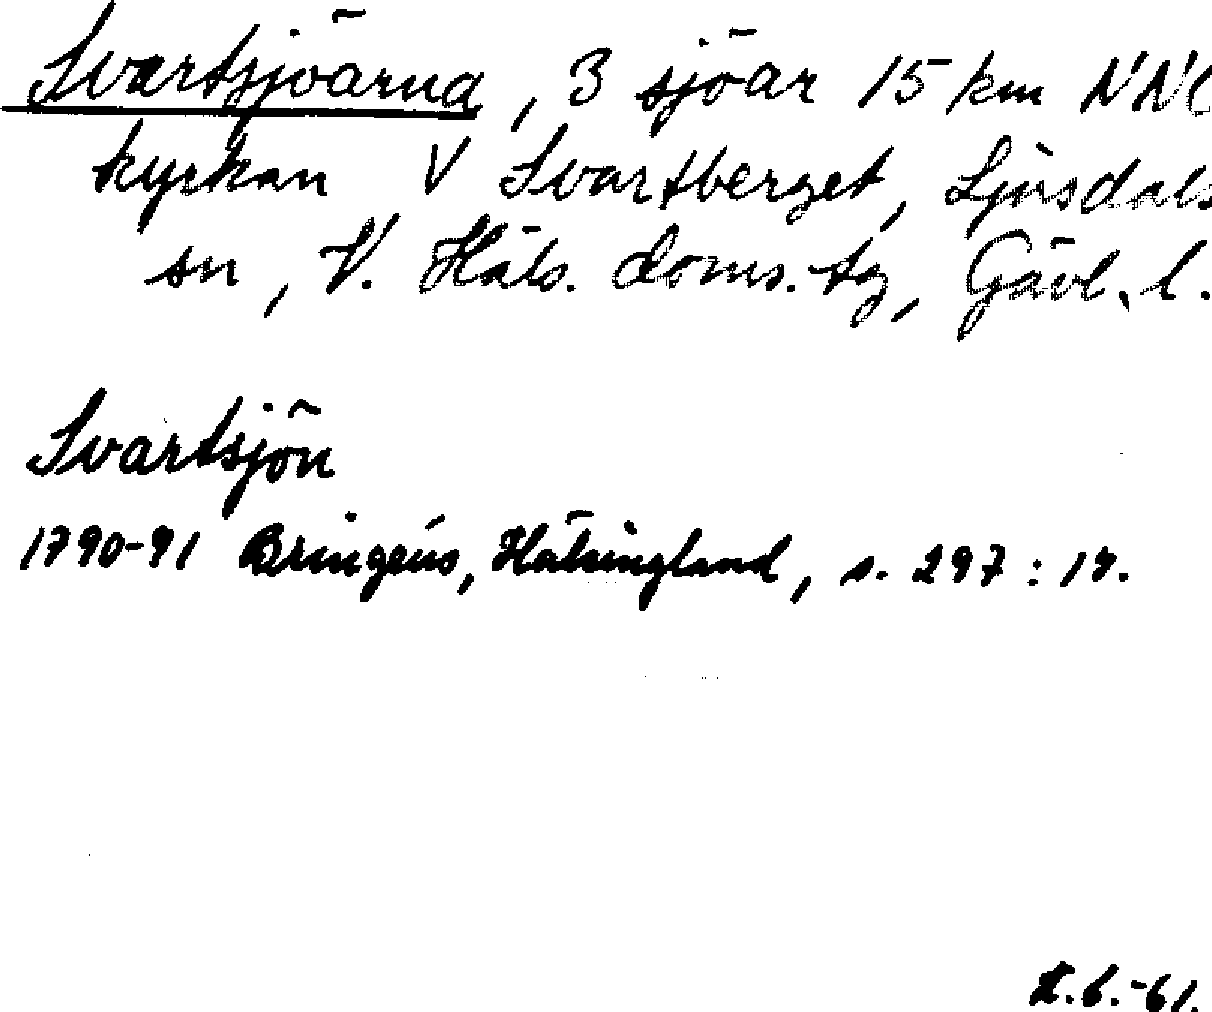 Svartsjöarna, 3 sjöar 15 km
kyrkan V Svartberget, Ljusdals
sn, V. Häls. doms. tg, Gävl. l.
Svartsjön
1790-91 Bringéus, Hälsingland, s. 297: